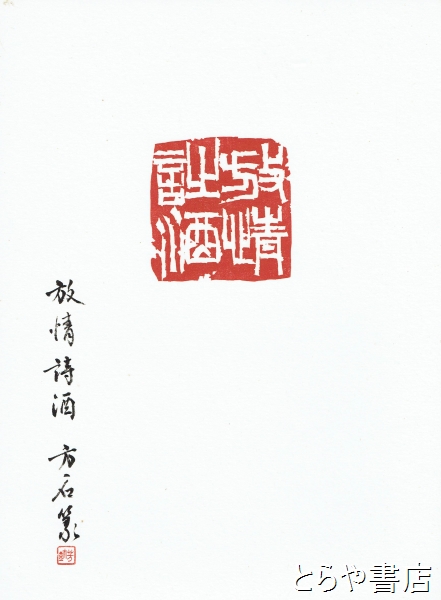 放情詩酒
放情詩酒 方石篆
とらや書店